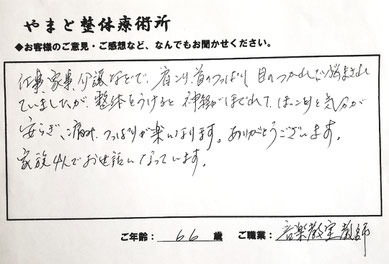 やまと整体療術所
◆お客様のご意見・ご感想など、なんでもお聞かせください。
仕事、家事、介護などで、肩こり、首のつっぱり 目のつかれに悩まされ
ていましたが、整体をうけると神経がほぐれて、ほっこりと気分が
安らぎ、痛み、つっぱりが楽になります。ありがとうございます。
家族4人でお世話になっています。
ご年齢： 66 歳 ご職業： 音楽教室教師